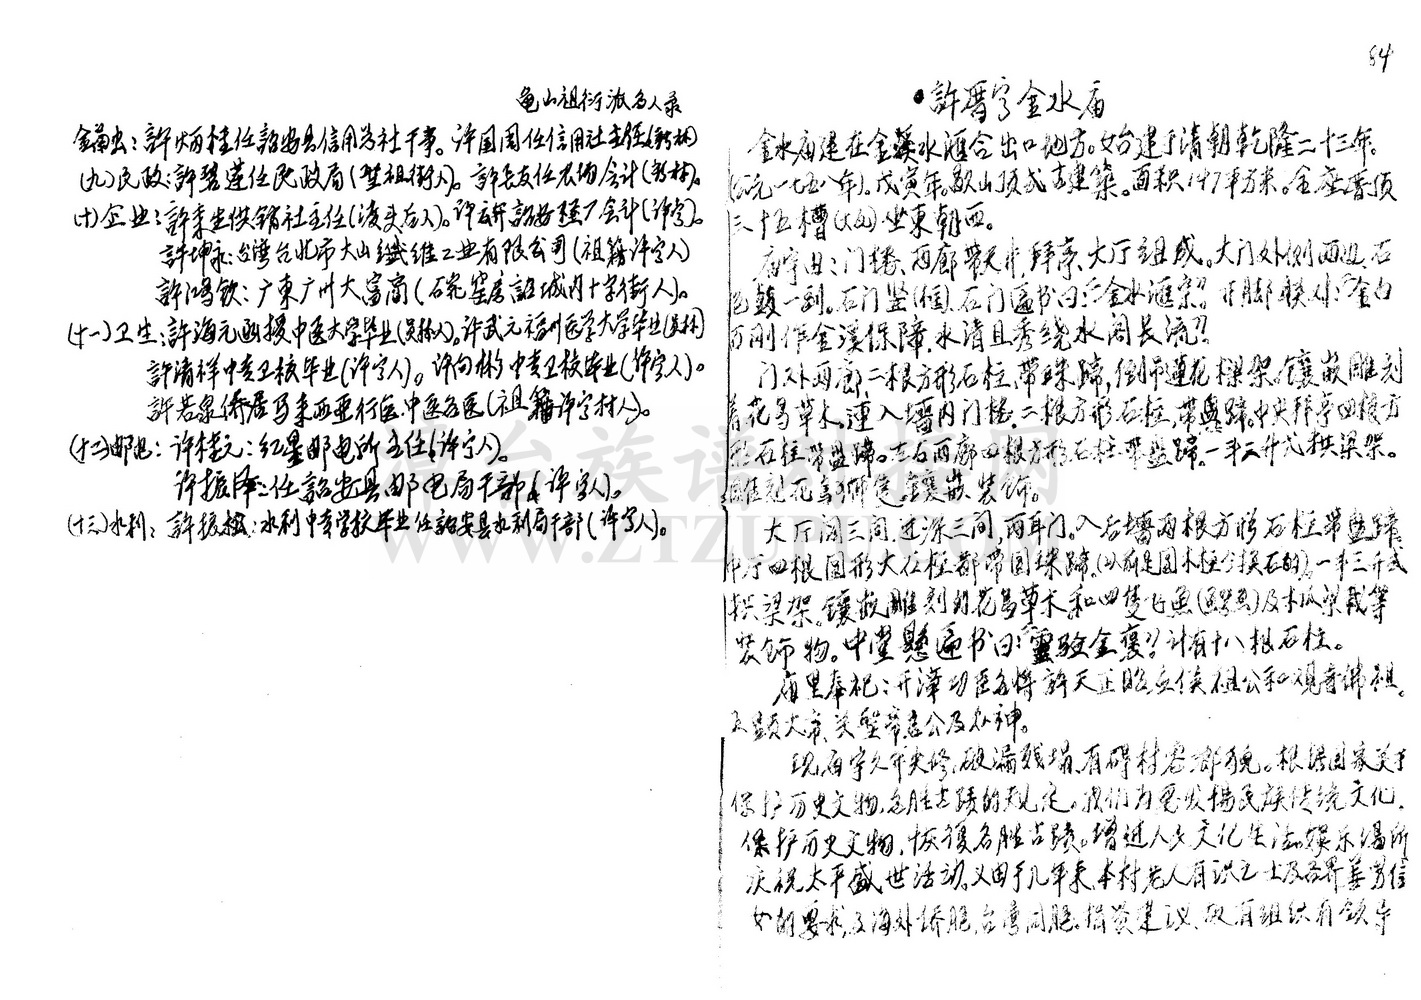 龟山祖衍派名人录
金融:許炳桂任詔安县信用总社干事。许国周任信用社主任(新林)
(九)民政:許碧莲任民政局(壁祖街人)。許长友任农场会计(新林)。
(十)企业:許来生供销社主任(渡头后人)。许 詔安糖厂会计(许字)。
許坤永:台湾台北市大山纖维工业有限公司(祖籍许字人)
許鸿欽:广東广州大富商(石 詔城内十字街人)。
(十一)卫生:許海元函授中医大学毕业(吴林人)。许武元福州医学大学毕业(吴林)
許清祥中专卫校毕业(许字人)。许向彬中专卫校毕业(许字人)。
許若泉侨居马来西亚行医中医名医(祖籍许字村人)。
(十二)邮电:许桂元:红星邮电所主任(许字人)。
许振 :任詔安县邮电局干部(许字人)。
(十三)水利:許振 :水利中专学校毕业任詔安县水利局干部(许字人)。
漳台族谱对接网
WWW.ZTZUPU.COM
64
•許厝字金水庙
金水庙建在金溪水滙合出口地方。始建于清朝乾隆二十三年。
(公元一七五八年)。戊寅年。歇山顶式古建築。面积197平方米。全座晋顶
三十五槽 坐東朝西。
庙宇由:门楼、两廊带天井、拜亭、大厅组成。大门外侧两边石
鼓一对。石门竖(個)石门匾书曰:"金水滙宗" 脚联对:"金
刚作金溪保障,水清且秀绕水阁長流"
门外两廊二根方形石柱,带珠蹄,倒吊蓮花樑架。鑲嵌雕刻
着花鸟草木,連入墻内门楼。二根方形石柱,带盘蹄。中央拜亭四根方
形石柱带盘蹄。左右两廊四根方形石柱带盘蹄。一斗二升式拱梁架。
雕刻花鸟 鑲嵌装饰。
大厅阔三间,进深三间,两耳门。入后墻两根方形石柱带盘蹄,
中厅四根圆形大石柱都带圆珠蹄。(以前是圆木柱今换石的)。一斗三升式
拱梁架。镶嵌雕刻的花鸟草木和四隻飞鱼(鰲鱼)及木瓜 等
装飾物。中堂懸匾书曰:"靈验金 "計有十八根石柱。
庙里奉祀:开漳功臣名将許天正昭应侯祖公和观音佛祖。
大帝、关聖帝 公及众神。
现庙宇久年失修,破漏残塌,有碍村容鄉貌。根据国家关于
保护历史文物,名胜古蹟的规定。我们为要发揚民族传统文化,
保护历史文物,恢復名胜古蹟。增进人民文化生活娱乐場所
庆祝太平盛世活动。又由于几年来本村老人有识之士及各界善男信
女的要求,及海外侨胞,台湾同胞,捐资建议,故有组织有领导